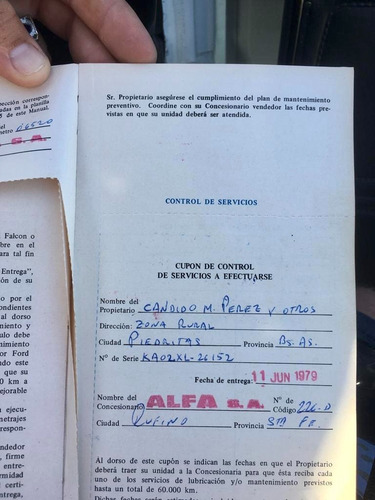 ección correspon-
adas en la planilla
5 de este Manual.
del
metro 06520
S.A.
Falcon o
bre en el
ara tal fin
Entrega",
ión de su
o por el
ondientes
al dorso
miento y
ulo debe
nimiento
or Ford
ndo este
que su
0 km a
ejorable
ejecu-
metrajes
respon-
ndedor
, firme
entre-
ormidad
l certi-
ntrega.
Sr. Propietario asegúrese el cumplimiento del plan de mantenimiento
preventivo. Coordine con su Concesionario vendedor las fechas pre-
vistas en que su unidad deberá ser atendida.
CONTROL DE SERVICIOS
CUPON DE CONTROL
DE SERVICIOS A EFECTUARSE
Nombre del
Propietario CANDIDO M. PEREZ Y OTROS
Dirección: ZONA RURAL
Ciudad PIEDRITAS Provincia Bs. As.
Nº de Serie KA02XL-26152
Fecha de entrega: 11 JUN 1979
Nombre del
Concesionario ALFA S.A. Nº de
Código 226-D
Ciudad RUFINO Provincia STA FE.
Al dorso de este cupón se indican las fechas en que el Propietario
deberá traer su unidad a la Concesionaria para que ésta reciba cada
uno de los servicios de lubricación y/o mantenimiento previstos
hasta un total de 60.000 km.